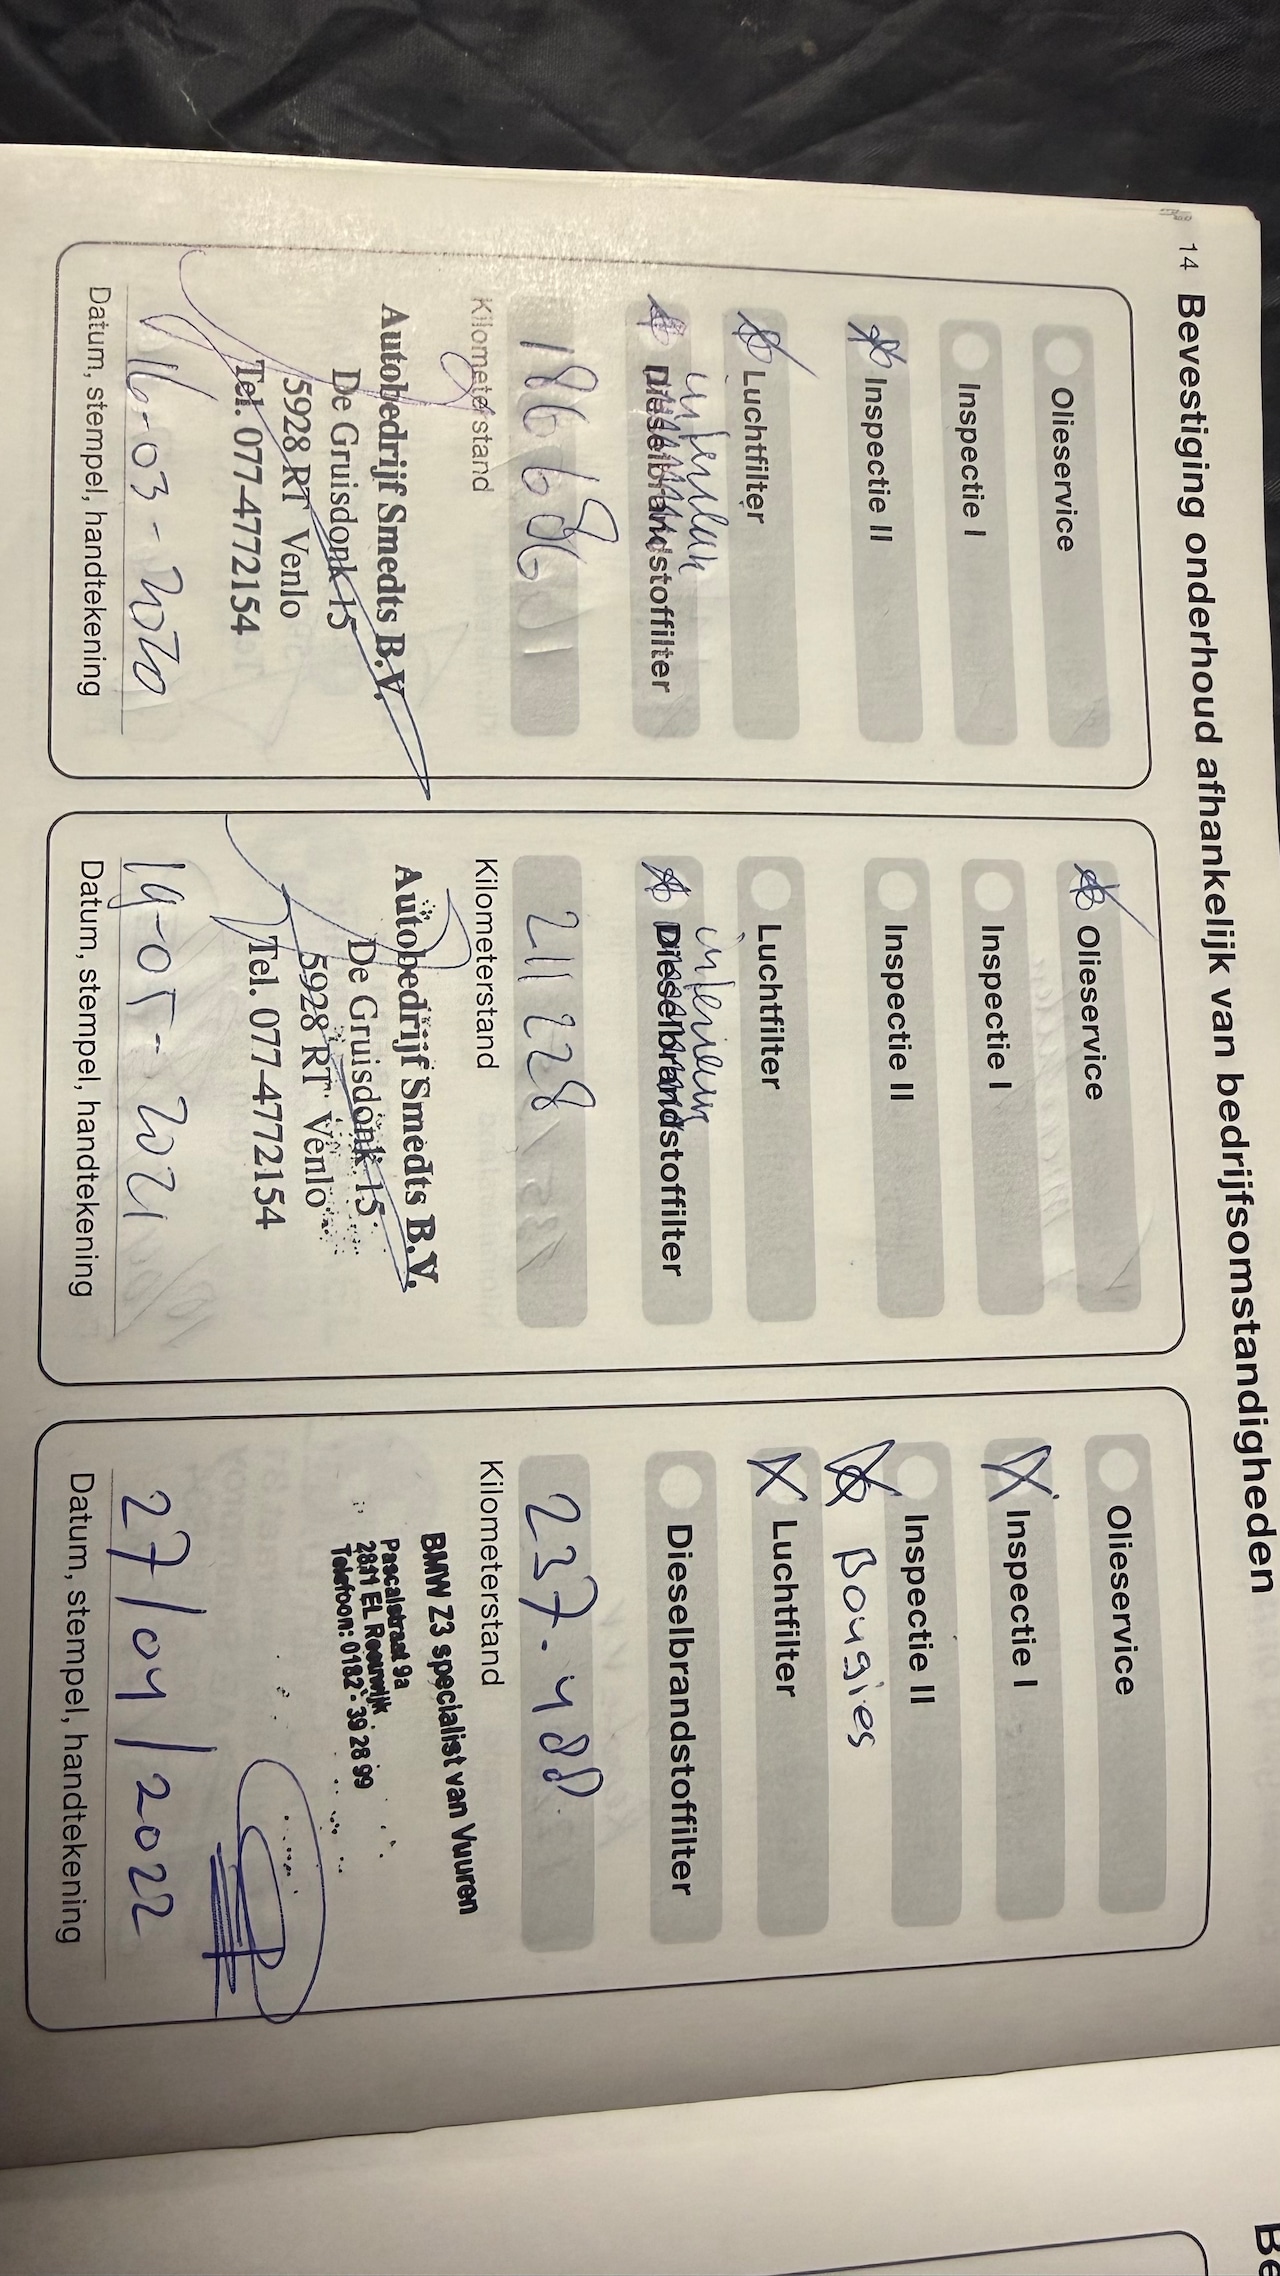 14 Bevestiging onderhoud afhankelijk van bedrijfsomstandigheden
Olieservice
Inspectie I
Inspectie II
Luchtfilter
interieur
Dieselbrandstoffilter
186686
Kilometerstand
Autobedrijf Smedts B.V.
De Gruisdonk 15
5928 RT Venlo
Tel. 077-4772154
16-03-2020
Datum, stempel, handtekening
Olieservice
Inspectie I
Inspectie II
Luchtfilter
interieur
Dieselbrandstoffilter
211228
Kilometerstand
Autobedrijf Smedts B.V.
De Gruisdonk 15
5928 RT Venlo
Tel. 077-4772154
19-05-2021
Datum, stempel, handtekening
Olieservice
Inspectie I
Inspectie II
Bougies
Luchtfilter
Dieselbrandstoffilter
237.488
Kilometerstand
BMW Z3 specialist van Vuuren
Pascalstraat 9a
2811 EL Reeuwijk
Telefoon: 0182 - 39 28 99
27/04/2022
Datum, stempel, handtekening
Be